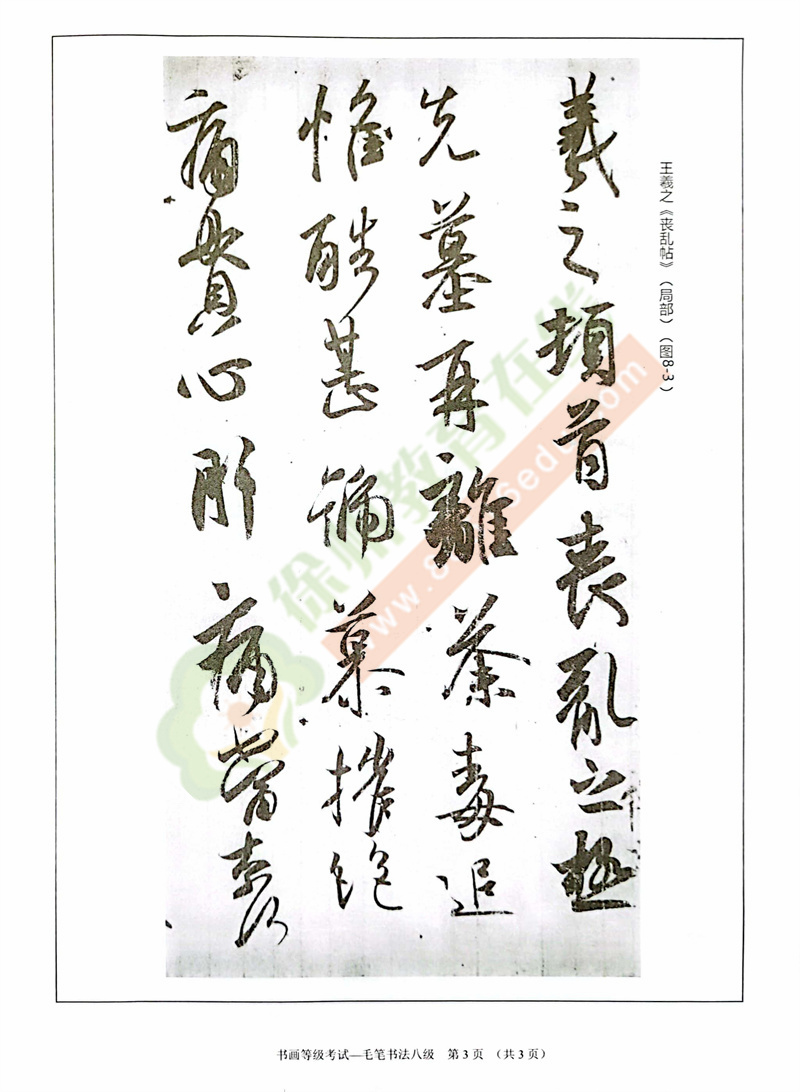 王羲之《丧乱帖》（局部）（图8-3）
羲之頓首喪亂之極
先墓再離荼毒追
惟酷甚號慕摧絕
痛貫心肝痛當奈何
徐州教育在线
书画等级考试—毛笔书法八级 第3页 （共3页）